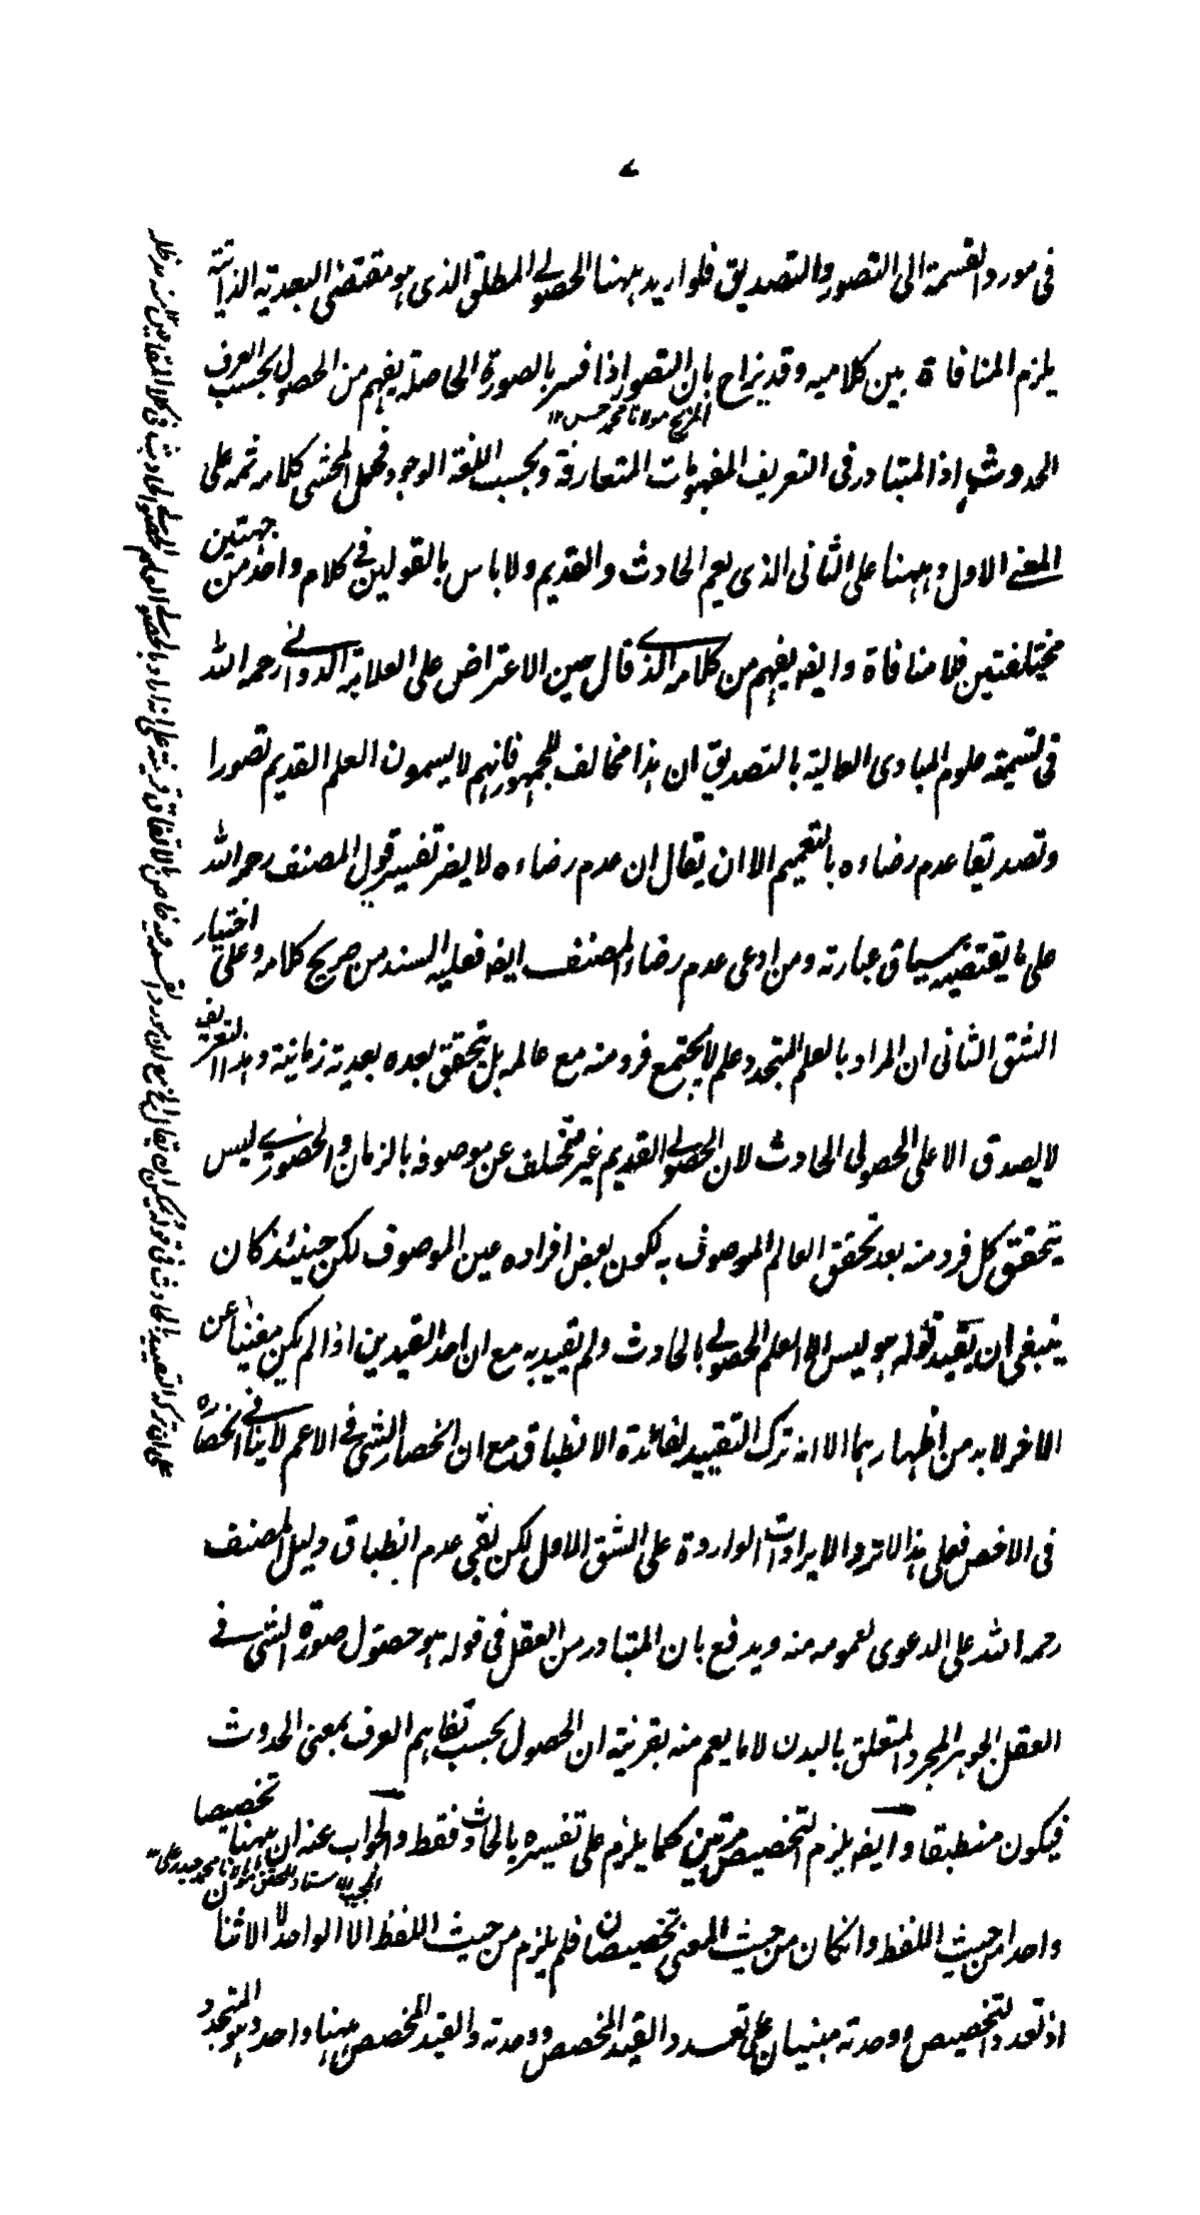 ٧
فى مورد القسمة الى التصور والتصديق فلو اريد ههنا الحصولى المطلق الذى هو مقتضى البعدية الذاتية
يلزم المنافاة بين كلاميه وقد يزاح بان التصور اذا فسر بالصورة الحاصلة يفهم من الحصول بحسب العرف
المزيح مولانا محمد حسن ١٢
الحدوث اذ المتبادر فى التعريف المفهومات المتعارفة وبحسب اللغة الوجود فحمل المحشى كلامه ثمه على
المعنى الاول وههنا على الثانى الذى يعم الحادث والقديم ولا باس بالقولين فى كلام واحد من جهتين
مختلفتين فلا منافاة وايضا يفهم من كلامه الذى قال حين الاعتراض على العلامة الدوانى رحمه الله
فى تسمية علوم المبادى العالية بالتصديق ان هذا مخالف للجمهور فانهم لا يسمون العلم القديم تصورا
وتصديقا عدم رضاءه بالتعميم الا ان يقال ان عدم رضاءه لا يضر تفسير قول المصنف رحمه الله
على ما يقتضيه سياق عبارته ومن ادعى عدم رضاء المصنف ايضا فعليه السند من صريح كلامه وعلى اختيار
الشق الثانى ان المراد بالعلم المتجدد علم لا يجتمع فرد منه مع عالمه بل يتحقق بعده بعدية زمانية وهذا التعريف
لا يصدق الا على الحصولى الحادث لان الحصولى القديم غير متخلف عن موصوفه بالزمان والحضورى ليس
يتحقق كل فرد منه بعد تحقق العالم الموصوف به لكون بعض افراده عين الموصوف لكن حينئذ كان
ينبغى ان يقيد قوله هو ليس الا العلم الحصولى بالحادث ولم يقيد به مع ان احد القيدين اذا لم يكن مغنيا عن
الاخر لا بد من اظهارهما الا انه ترك التقييد لفائدة الانطباق مع ان انحصار الشى فى الاعم لا ينافى انحصاره
فى الاخص فعلى هذا لا ترد الايرادات الواردة على الشق الاول لكن بقى عدم انطباق دليل المصنف
رحمه الله على الدعوى لعمومه منه ويدفع بان المتبادر من العقل فى قوله هو حصول صورة الشى فى
العقل الجوهر المجرد المتعلق بالبدن لا ما يعم منه بقرينة ان الحصول بحسب تفاهم العرف بمعنى الحدوث
فيكون منطبقا وايضا يلزم التخصيص مرتين كما يلزم على تفسيره بالحادث فقط والجواب عنه ان ههنا تخصيصا
واحدا من حيث اللفظ وان كان من حيث المعنى تخصيصان فلم يلزم من حيث اللفظ الا الواحد لا الاثنان
اذ تعدد التخصيص ووحدته مبنيان على تعدد القيد المخصص ووحدته والقيد المخصص ههنا واحد وهو المتجدد